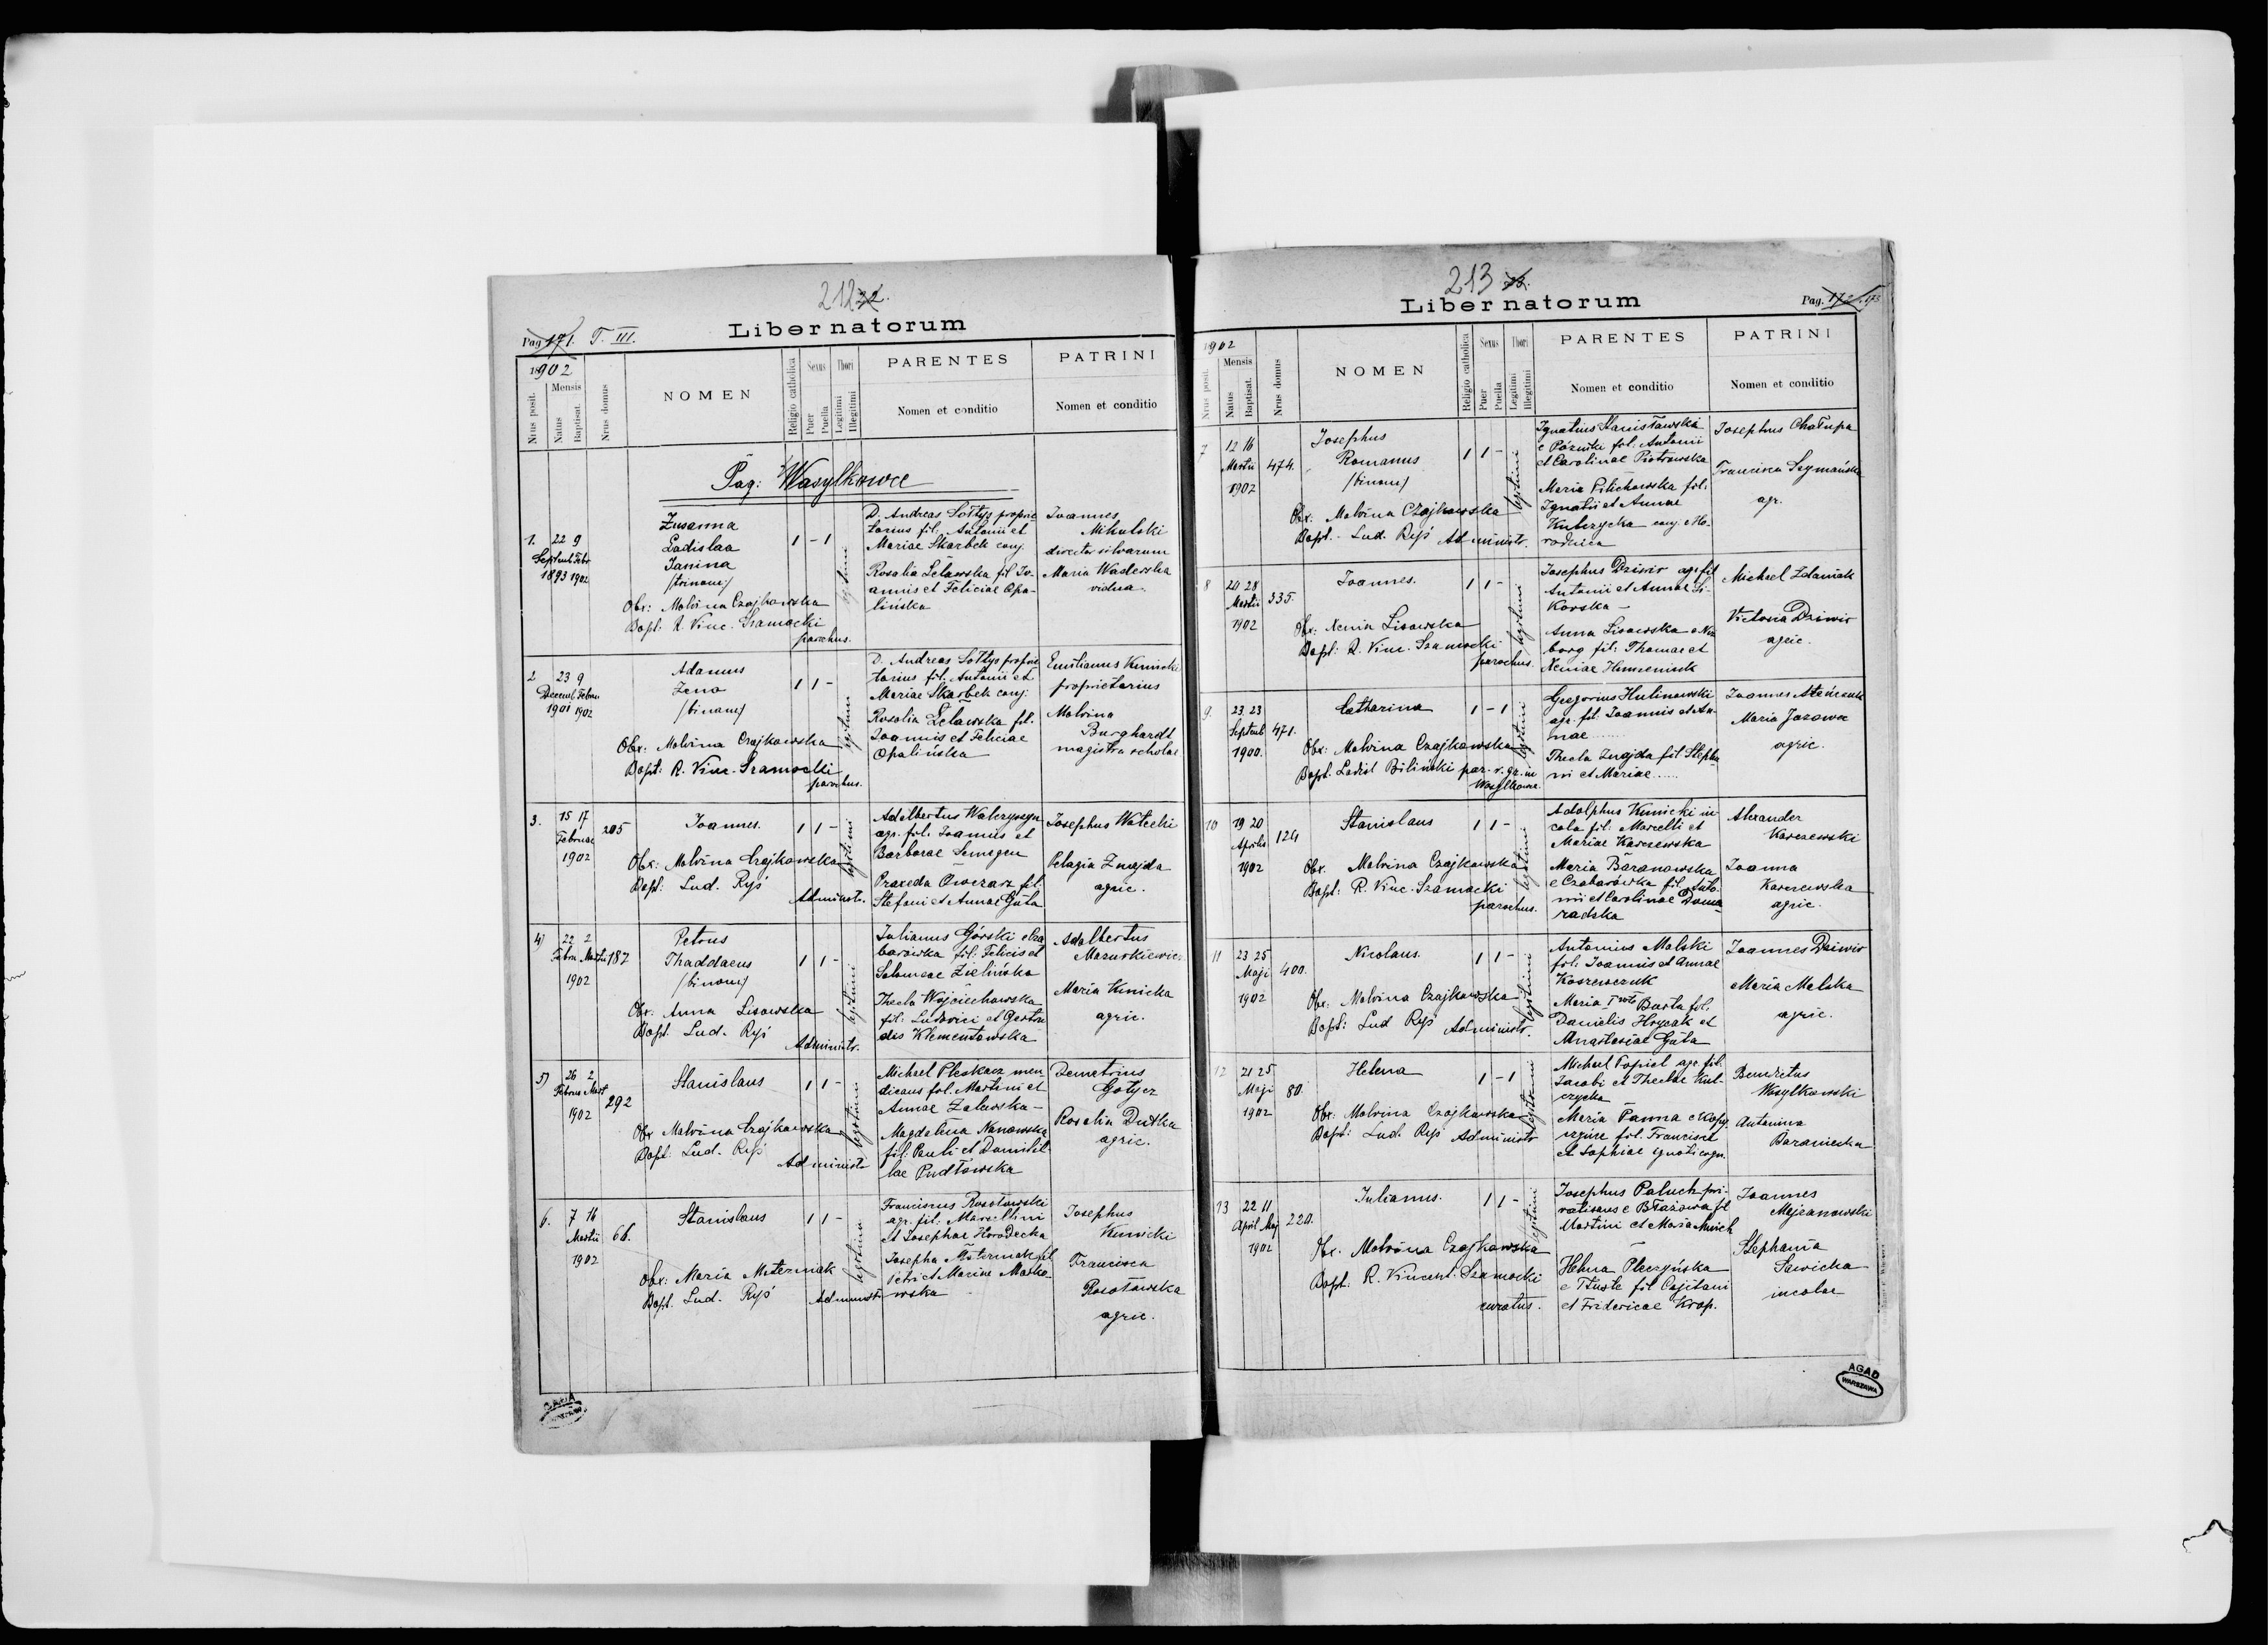 212 22.
Liber natorum
Pag 171. T. III.
1902
Nrus posit.
Mensis
Natus
Baptisat.
Nrus domus
NOMEN
Religio catholica
Sexus
Puer
Puella
Thori
Legitimi
Illegitimi
PARENTES
Nomen et conditio
PATRINI
Nomen et conditio
Pag: Wasylkowce
1. 22 9
Septemb Febr
1893 1902
Zusanna
Ladislaa
Janina
/trinom/
1 - 1
legitimi
Obs: Malvina Czajkowska
Bapt: R. Vinc. Szamocki
parochus.
D. Andreas Sołtys proprie-
tarius fil. Antonii et
Mariae Skarbek conj.
Rosalia Zeławska fil. Jo-
annis et Feliciae Opa-
lińska
Joannes
Mikulski
director silvarum
Maria
vidua.
2 23 9
Decemb Febru
1901 1902
Adamus
Zeno
/binom/
1 1 -
legitimi
Obx: Malvina Czajkowska
Bapt: R. Vinc. Szamocki
parochus.
D. Andreas Sołtys proprie
tarius fil. Antonii et
Mariae Skarbek conj.
Rosalia Zeławska fil.
Joannis et Feliciae
Opalińska
Emilianus Kunicki
proprietarius
Malvina
Burghardt
magistra scholae
3. 15 17
Februae
1902
205
Joannes.
1 1 -
legitimi
Obx: Malvina Czajkowska
Bapt: Lud. Ryś
Administr.
Adalbertus
agr. fil. Joannis et
Barbarae
Praxeda Owczarz fil.
Stefani et Annae Guta
Josephus Watecki
Pelagia Znajda
agric.
4) 22 2
Febru. Martii
1902
187
Petrus
Thaddaeus
/binom/
1 1 -
legitimi
Obx: Anna Lisowska
Bapt. Lud. Ryś
Administr.
Julianus Górski e Cza
barówka fil: Felicis et
Salomeae Zielińska
Thecla Wojciechowska
fil. Ludovici et Gertru
dis Klementowska
Adalbertus
Mazurkiewicz
Maria Kunicka
agric.
5) 26 2
Februa Mart
1902
292
Stanislaus
1 1 -
legitimi
Obx Malvina Czajkowska
Bapt: Lud. Ryś
Administr
Michael Pleskacz men-
dicans fil. Martini et
Annae Zalewska -
Magdalena Nanowska
fil: Pauli et Domicil-
lae Pudłowska
Demetrius
Gotycz
Rosalia Dutka
agric.
6. 7 16
Martii
1902
66.
Stanislaus
1 1 -
legitimi
Obx: Maria Maternak
Bapt. Lud. Ryś
Administr
Franciscus Rosołowski
agr. fil. Marcellini
et Josephae Horodecka
Josepha Maternak fil
Petri et Mariae Marko-
wska
Josephus
Kunicki
Francisca
Rosołowska
agric.
213 22.
Liber natorum
Pag. 172. 173
1902
Nrus posit.
Mensis
Natus
Baptisat.
Nrus domus
NOMEN
Religio catholica
Sexus
Puer
Puella
Thori
Legitimi
Illegitimi
PARENTES
Nomen et conditio
PATRINI
Nomen et conditio
7 12 16
Martii
1902
474.
Josephus
Romanus
/binom/
1 1 -
legitimi
Obx: Malvina Czajkowska
Bapt. - Lud. Ryś Administr.
Ignatius Stanisławski
e fil. Antonii
et Carolinae Piotrowska
Maria Pilichowska fil.
Ignatii et Annae
Kubrycka conj. e Ho-
rodnica
Josephus Chałupa
Francisca Szymańska
agr.
8 20 28
Martii
1902
335.
Joannes.
1 1 -
legitimi
Obx: Xenia Lisowska
Bapt: R. Vinc. Szamocki
parochus.
Josephus Dziwir agr. fil
Antonii et Annae Si-
korska -
Anna Lisowska e Niz
borg fil: Thomae et
Xeniae
Michael Zdaniak
Victoria Dziwir
agric.
9. 23 23
Septemb
1900.
471.
Catharina
1 - 1
legitimi
Obx: Malvina Czajkowska
Bapt. Ladisl Biliński par. r. gr. in
Wasylkowce.
Gregorius Hulinowski
agr. fil: Joannis et An-
nae......
Thecla Znajda fil Stepha
ni et Mariae.....
Joannes
Maria
agric.
10 19 20
Aprilis
1902
124
Stanislaus
1 1 -
legitimi
Obx. Malvina Czajkowska
Bapt: R. Vinc. Szamocki
parochus.
Adolphus Kunicki in
cola fil. Marcelli et
Mariae Karczewska
Maria Baranowska
e Czabarówka fil. Anto-
nii et Carolinae Doma-
radzka
Alexander
Karczewski
Joanna
Karczewska
agric.
11 23 25
Maji
1902
400.
Nicolaus.
1 1 -
legitimi
Obx. Malvina Czajkowska
Bapt: Lud Ryś Administr.
Antonius Malski
fil. Joannis et Annae
Maria I voto Burta fil.
Danielis Hrycak et
Anastasiae Guta
Joannes Dziwir
Maria Malska
agric.
12 21 25
Maji
1902
80.
Helena
1 - 1
legitimi
Obx: Malvina Czajkowska
Bapt: Lud. Ryś Administr
Michael Popiel agr. fil.
Jacobi et Theclae Kul-
czycka
Maria Panna e Kopy
czyńce fil. Francisci
et Sophiae ignoti cogn.
Benedictus
Wasylkowski
Antonina
Baraniecka
13 22 11
April Maj
1902
220.
Julianus.
1 1 -
legitimi
Obx. Malvina Czajkowska
Bapt. R. Vincent. Szamocki
curatus.
Josephus Paluch pri-
vatisans e Błażowa fil
Martini et Maria
Helena Pleszyńska
e Tłuste fil Cajetani
et Fridericae Krop.
Joannes
Stephania
Sawicka
incolae
AGAD
WARSZAWA